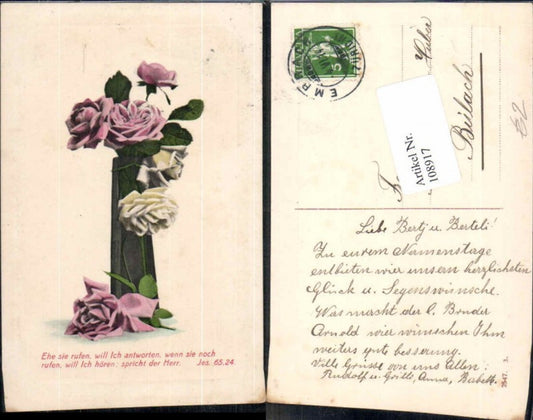 Ehe sie rufen, will Ich antworten, wenn sie noch
rufen, will Ich hören, spricht der Herr. Jes. 65.24.
EMBRACH
5
Artikel Nr.
108917
Huber
Beilach
E2
Liebe Bertj u. Berteli!
Zu eurem Namenstage
entbieten wir unsern herzlichsten
Glück u. Segenswünsche.
Was macht der l. Bruder
Arnold wir wünschen Ihm
weiters gute besserung.
Viele Grüsse von uns Allen:
Rudolf u. Gritli, Anna, Babett.
2647. 3.